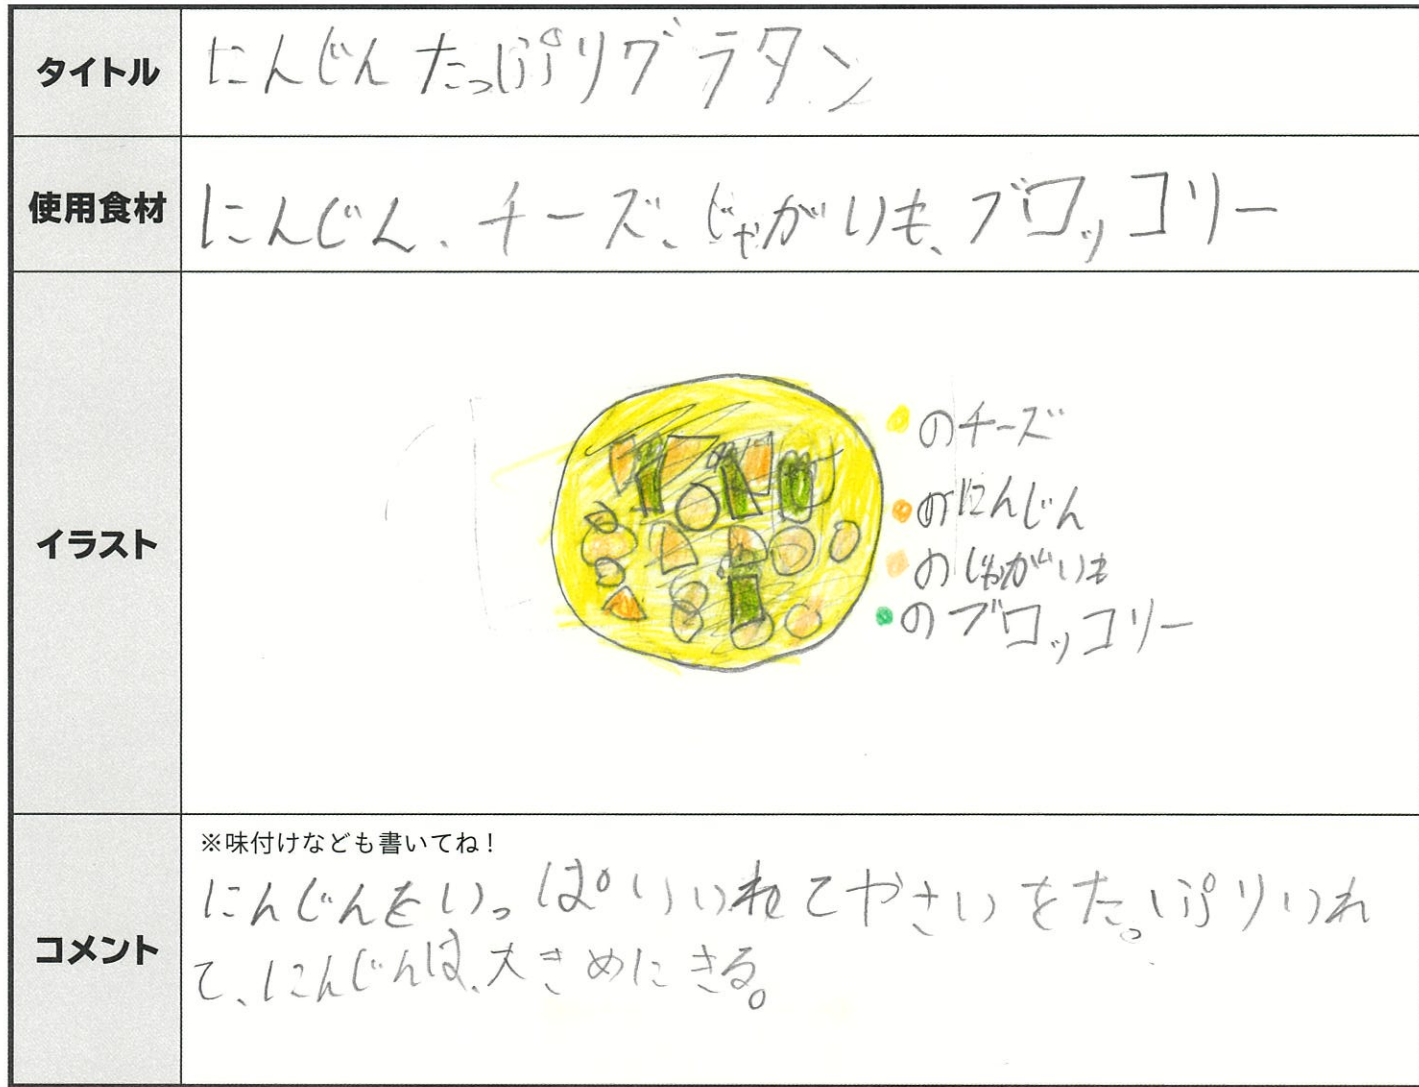 タイトル
にんじんたっぷりグラタン
使用食材
にんじん、チーズ、じゃがいも、ブロッコリー
イラスト
のチーズ
のにんじん
のじゃがいも
のブロッコリー
コメント
※味付けなども書いてね！
にんじんをいっぱいいれてやさいをたっぷりいれ
て、にんじんは、大きめにきる。